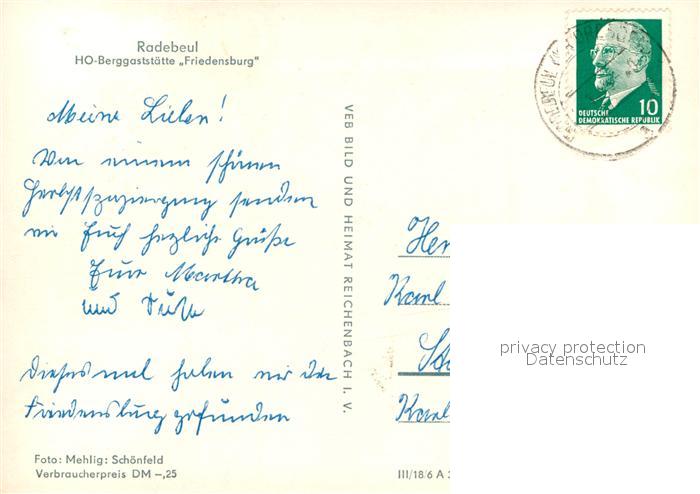 Radebeul
HO-Berggaststätte „Friedensburg"
Meine Lieben!
Von einem schönen
Herbstspaziergang senden
wir Euch herzliche Grüße
Eure Martha
und
Diesesmal haben wir die
Friedensburg gefunden
Foto: Mehlig: Schönfeld
Verbraucherpreis DM -,25
VEB BILD UND HEIMAT REICHENBACH I. V.
DEUTSCHE
DEMOKRATISCHE REPUBLIK
10
RADEBEUL
Karl
Karl
III/18/6 A
privacy protection
Datenschutz